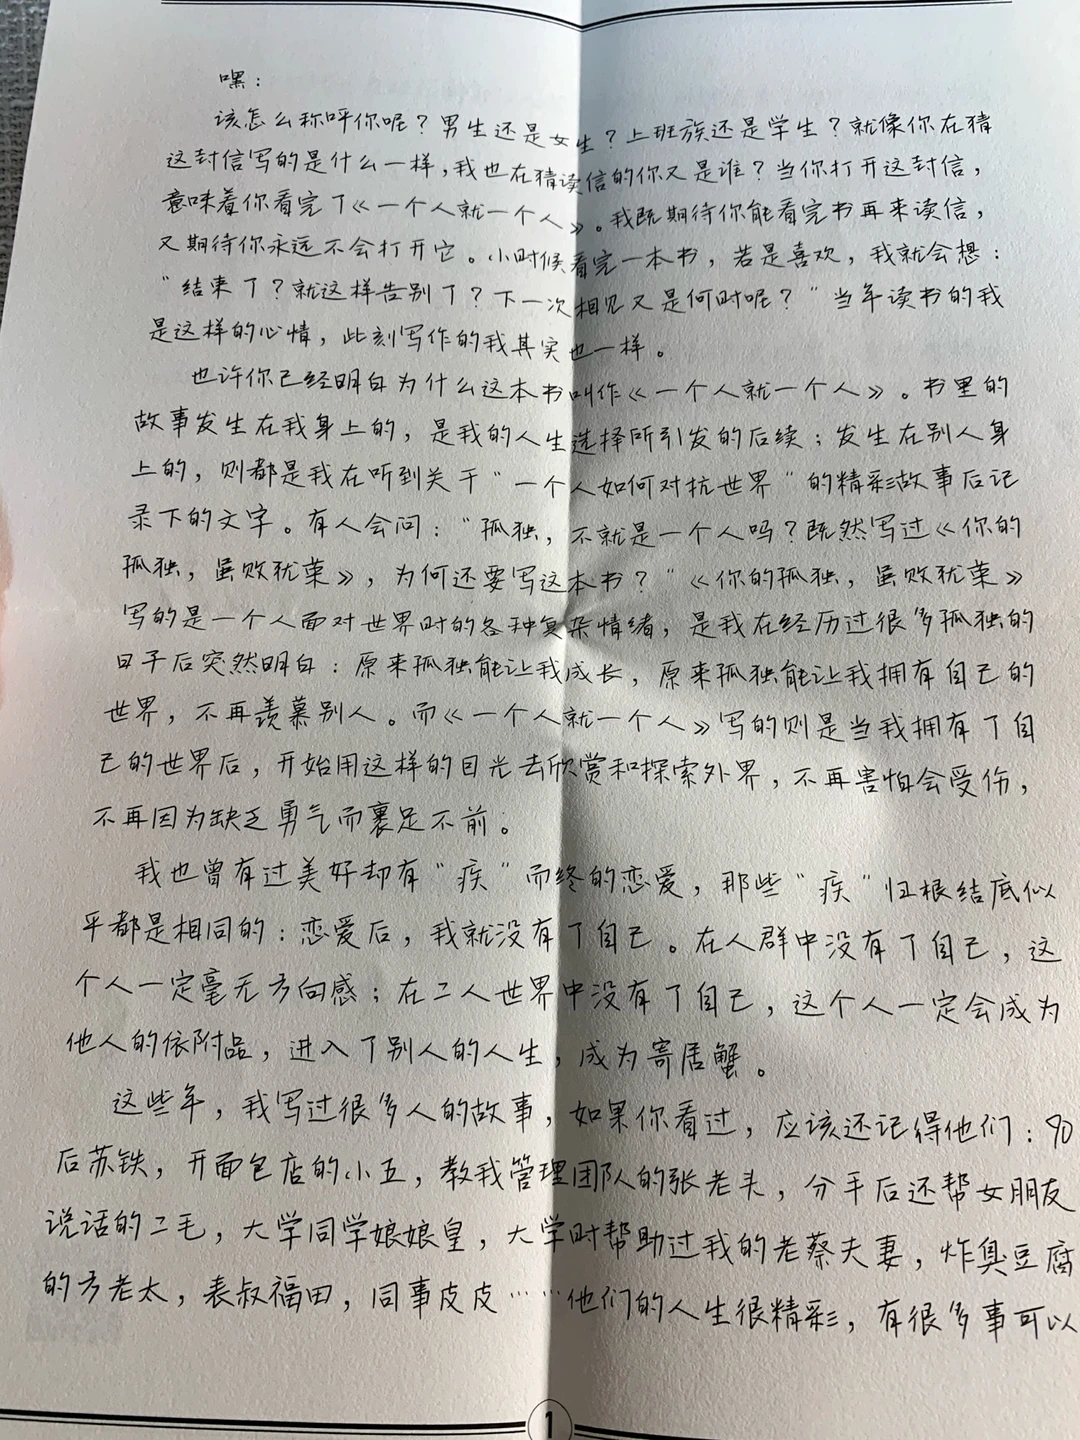 嘿：
该怎么称呼你呢？男生还是女生？上班族还是学生？就像你在猜
这封信写的是什么一样，我也在猜读信的你又是谁？当你打开这封信，
意味着你看完了《一个人就一个人》。我既期待你能看完书再来读信，
又期待你永远不会打开它。小时候看完一本书，若是喜欢，我就会想：
“结束了？就这样告别了？下一次相见又是何时呢？”当年读书的我
是这样的心情，此刻写作的我其实也一样。
也许你已经明白为什么这本书叫作《一个人就一个人》。书里的
故事发生在我身上的，是我的人生选择所引发的后续；发生在别人身
上的，则都是我在听到关于“一个人如何对抗世界”的精彩故事后记
录下的文字。有人会问：“孤独，不就是一个人吗？既然写过《你的
孤独，虽败犹荣》，为何还要写这本书？”《你的孤独，虽败犹荣》
写的是一个人面对世界时的各种复杂情绪，是我在经历过很多孤独的
日子后突然明白：原来孤独能让我成长，原来孤独能让我拥有自己的
世界，不再羡慕别人。而《一个人就一个人》写的则是当我拥有了自
己的世界后，开始用这样的目光去欣赏和探索外界，不再害怕会受伤，
不再因为缺乏勇气而裹足不前。
我也曾有过美好却有“疾”而终的恋爱，那些“疾”归根结底似
乎都是相同的：恋爱后，我就没有了自己。在人群中没有了自己，这
个人一定毫无方向感；在二人世界中没有了自己，这个人一定会成为
他人的依附品，进入了别人的人生，成为寄居蟹。
这些年，我写过很多人的故事，如果你看过，应该还记得他们：90
后苏铁，开面包店的小五，教我管理团队的张老头，分手后还帮女朋友
说话的二毛，大学同学娘娘皇，大学时帮助过我的老蔡夫妻，炸臭豆腐
的方老太，表叔福田，同事皮皮……他们的人生很精彩，有很多事可以
1